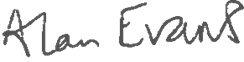 Alan Evans